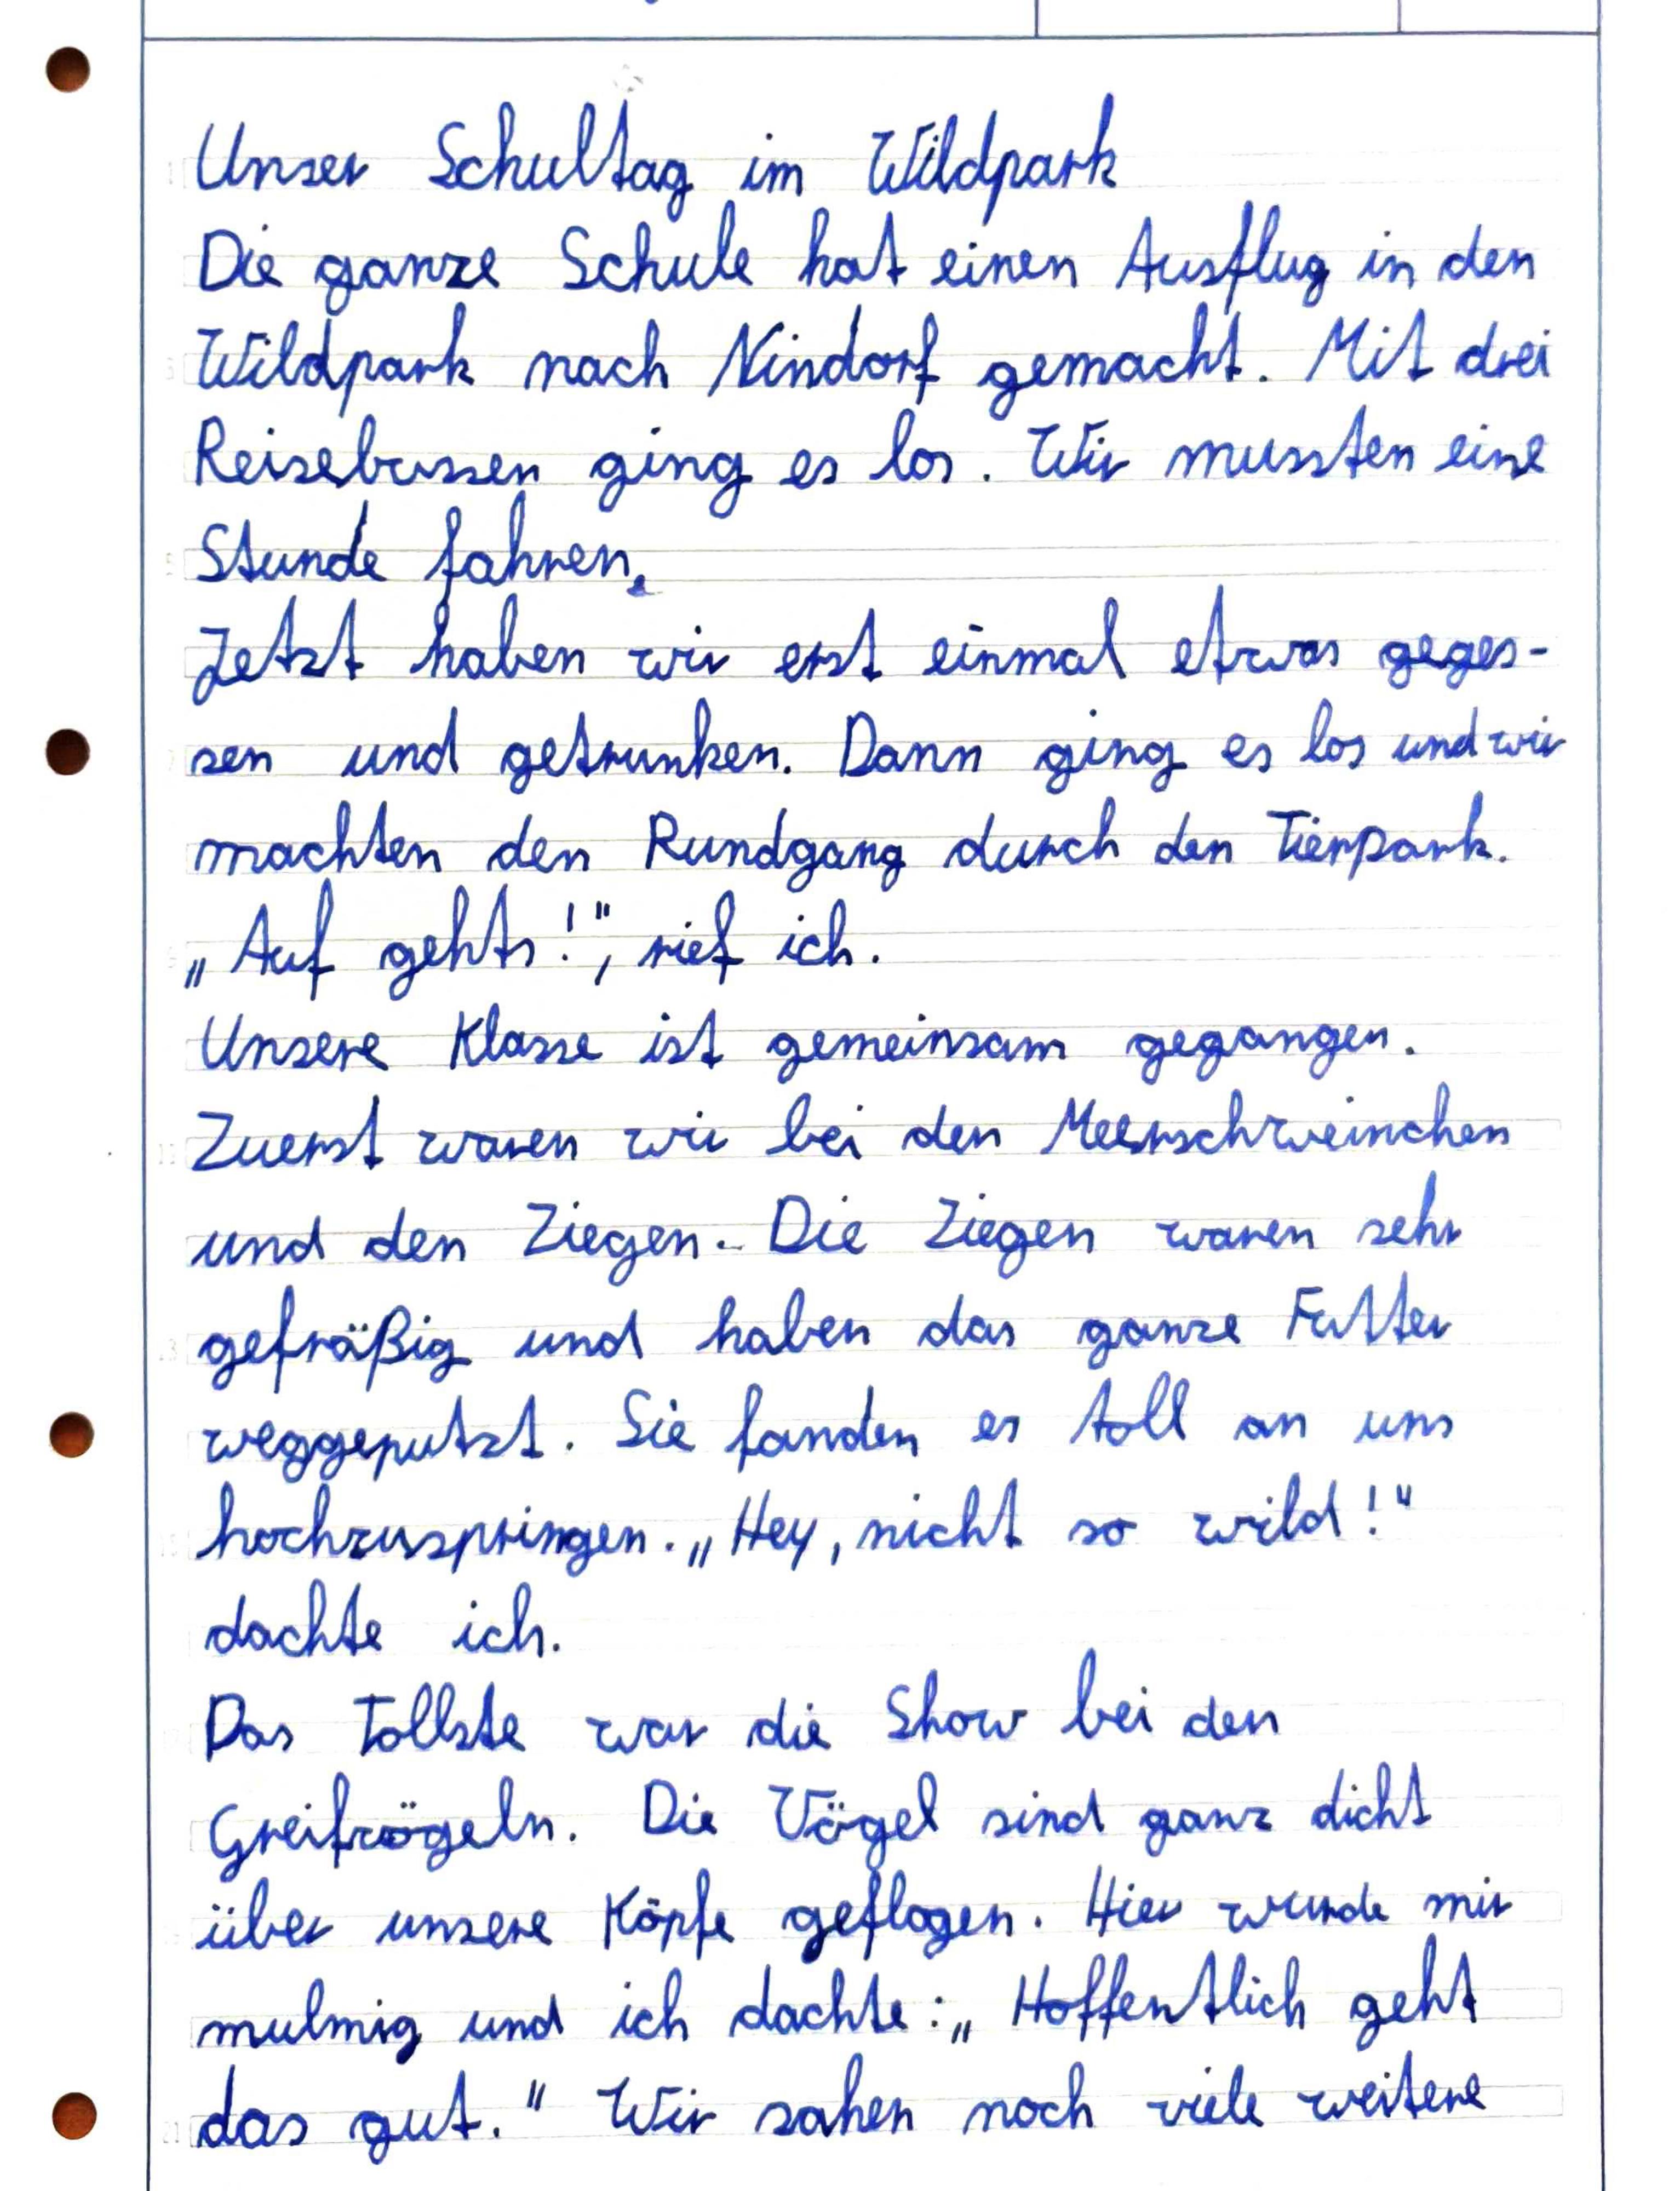 Unser Schultag im Wildpark
Die ganze Schule hat einen Ausflug in den
Wildpark nach Nindorf gemacht. Mit drei
Reisebussen ging es los. Wir mussten eine
Stunde fahren.
Jetzt haben wir erst einmal etwas geges-
sen und getrunken. Dann ging es los und wir
machten den Rundgang durch den Tierpark.
„Auf gehts!", rief ich.
Unsere Klasse ist gemeinsam gegangen.
Zuerst waren wir bei den Meerschweinchen
und den Ziegen. Die Ziegen waren sehr
gefräßig und haben das ganze Futter
weggeputzt. Sie fanden es toll an uns
hochzuspringen. „Hey, nicht so wild!"
dachte ich.
Das Tollste war die Show bei den
Greifvögeln. Die Vögel sind ganz dicht
über unsere Köpfe geflogen. Hier wurde mir
mulmig und ich dachte: „Hoffentlich geht
das gut." Wir sahen noch viele weitere